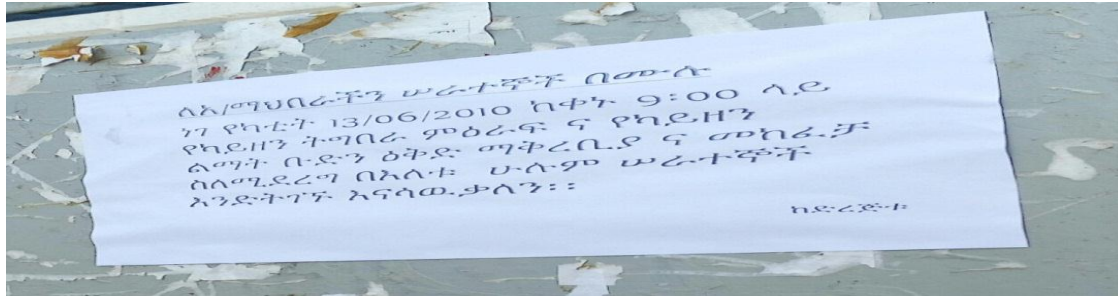 ለአ/ማህበራችን ሠራተኞች በሙሉ
ነገ የካቲት 13/06/2010 ከቀኑ 9:00 ላይ
የካይዘን ትግበራ ምዕራፍ ና የካይዘን
ልማት ቡድን ዕቅድ ማቅረቢያ ና መክፈቻ
ስለሚደረግ በእለቱ ሁሉም ሠራተኞች
እንድትገኙ እናሳዉቃለን፡፡
ከድረጅቱ